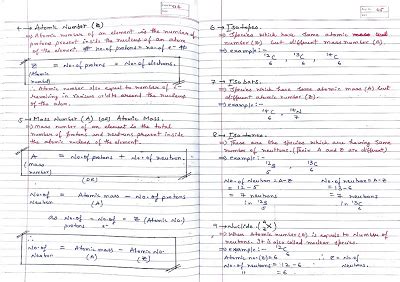 4 → Atomic Number (Z)
⇒ Atomic number of an element is the number of
protons present inside the nucleus of an atom
of the element. No. of protons = no. of e⁻
Z = No. of protons = No. of electrons.
(Atomic
number)
Atomic number also equal to number of e⁻
revolving in various orbits around the nucleus
of the atom.
5 → Mass Number (A) (OR) Atomic Mass.
⇒ Mass number of an element is the total
number of protons and neutrons present inside
the atomic nucleus of the element.
A = No. of protons + No. of neutron.
(mass
number)
(OR)
No. of = Atomic mass - No. of protons
Neutron (A)
as No. of = No. of = Z (Atomic No.)
protons e⁻
∴
No. of = Atomic mass - Atomic No.
Neutron (A) (Z)
6 → Isotopes.
⇒ Species which have same atomic
number (Z) but different mass number (A).
⇒ example:- ¹²C₆ ¹³C₆ ¹⁴C₆
7 → Isobars.
⇒ Species which have same atomic mass (A) but
different atomic number (Z).
⇒ example:-
¹⁴C₆ ¹⁴N₇
8 → Isotones.
⇒ These are the species which are having same
number of neutrons. (Their A and Z are different)
⇒ example:-
¹²B₅ ¹³C₆
No. of neutron = A-Z No. of neutron = A-Z
= 12-5 = 13-6
= 7 neutrons = 7 neutrons
in ¹²B₅ in ¹³C₆
9 → Nuclide
⇒ When Atomic number (Z) is equals to number of
neutrons. It is also called nuclear species.
⇒ example:- ¹²C₆
Atomic no. (Z) = 6 ∴ Z = No. of
No. of neutrons = 12-6 neutrons.
" = 6.